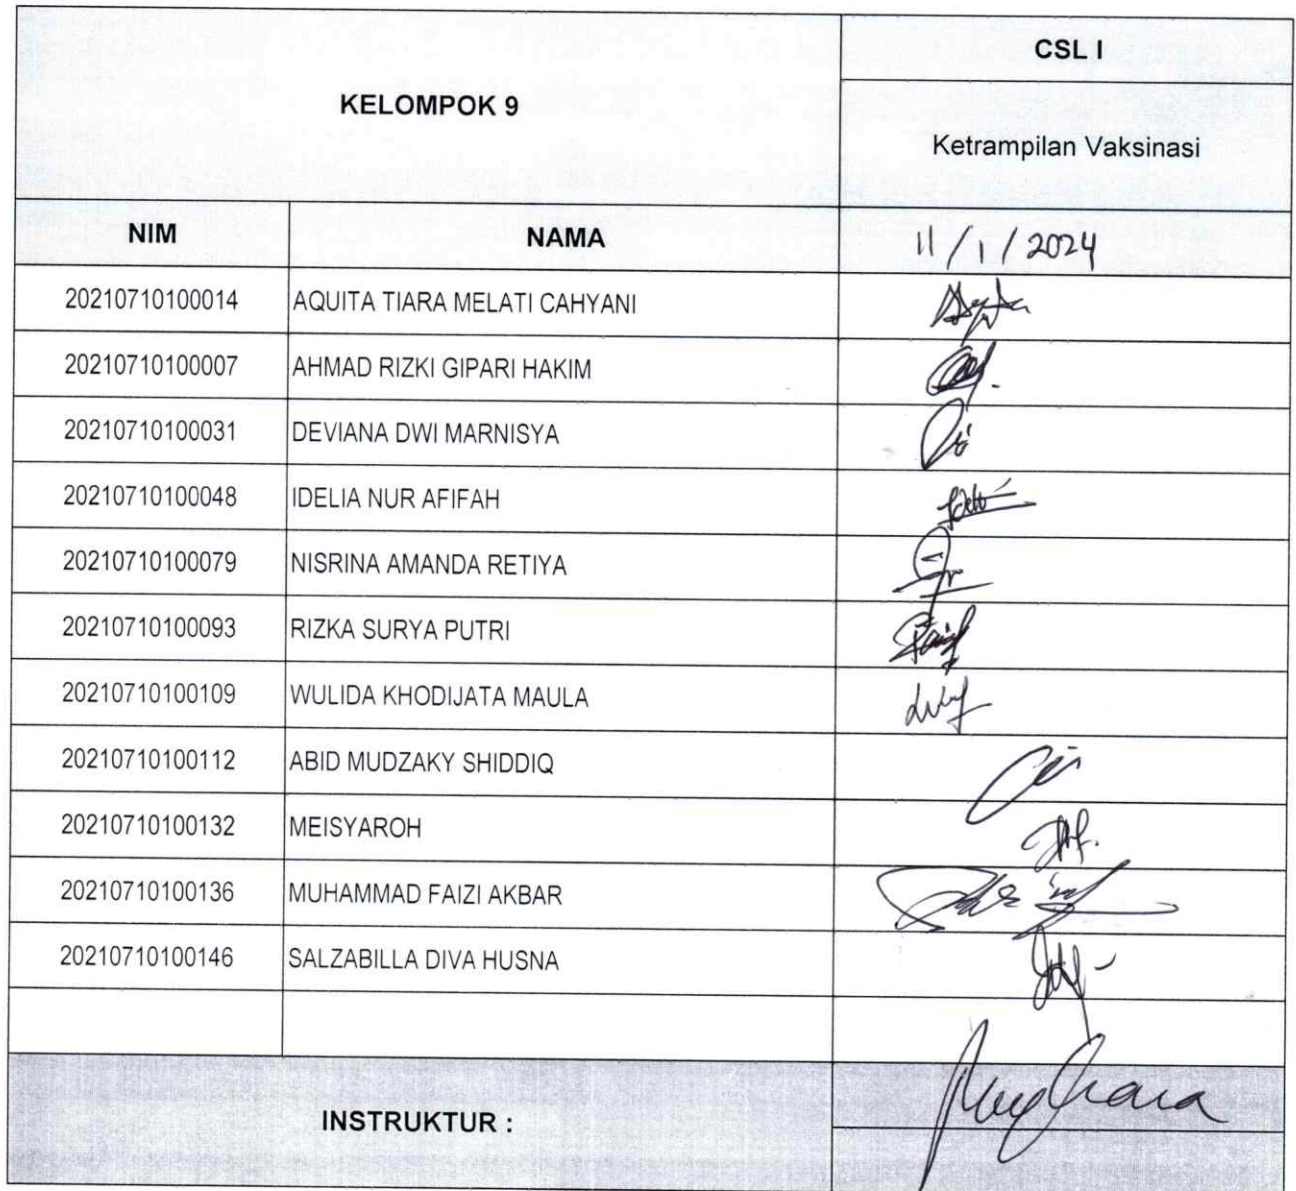 CSL I
KELOMPOK 9
Ketrampilan Vaksinasi
NIM NAMA 11/1/2024
20210710100014 AQUITA TIARA MELATI CAHYANI
20210710100007 AHMAD RIZKI GIPARI HAKIM
20210710100031 DEVIANA DWI MARNISYA
20210710100048 IDELIA NUR AFIFAH
20210710100079 NISRINA AMANDA RETIYA
20210710100093 RIZKA SURYA PUTRI
20210710100109 WULIDA KHODIJATA MAULA
20210710100112 ABID MUDZAKY SHIDDIQ
20210710100132 MEISYAROH
20210710100136 MUHAMMAD FAIZI AKBAR
20210710100146 SALZABILLA DIVA HUSNA
INSTRUKTUR :